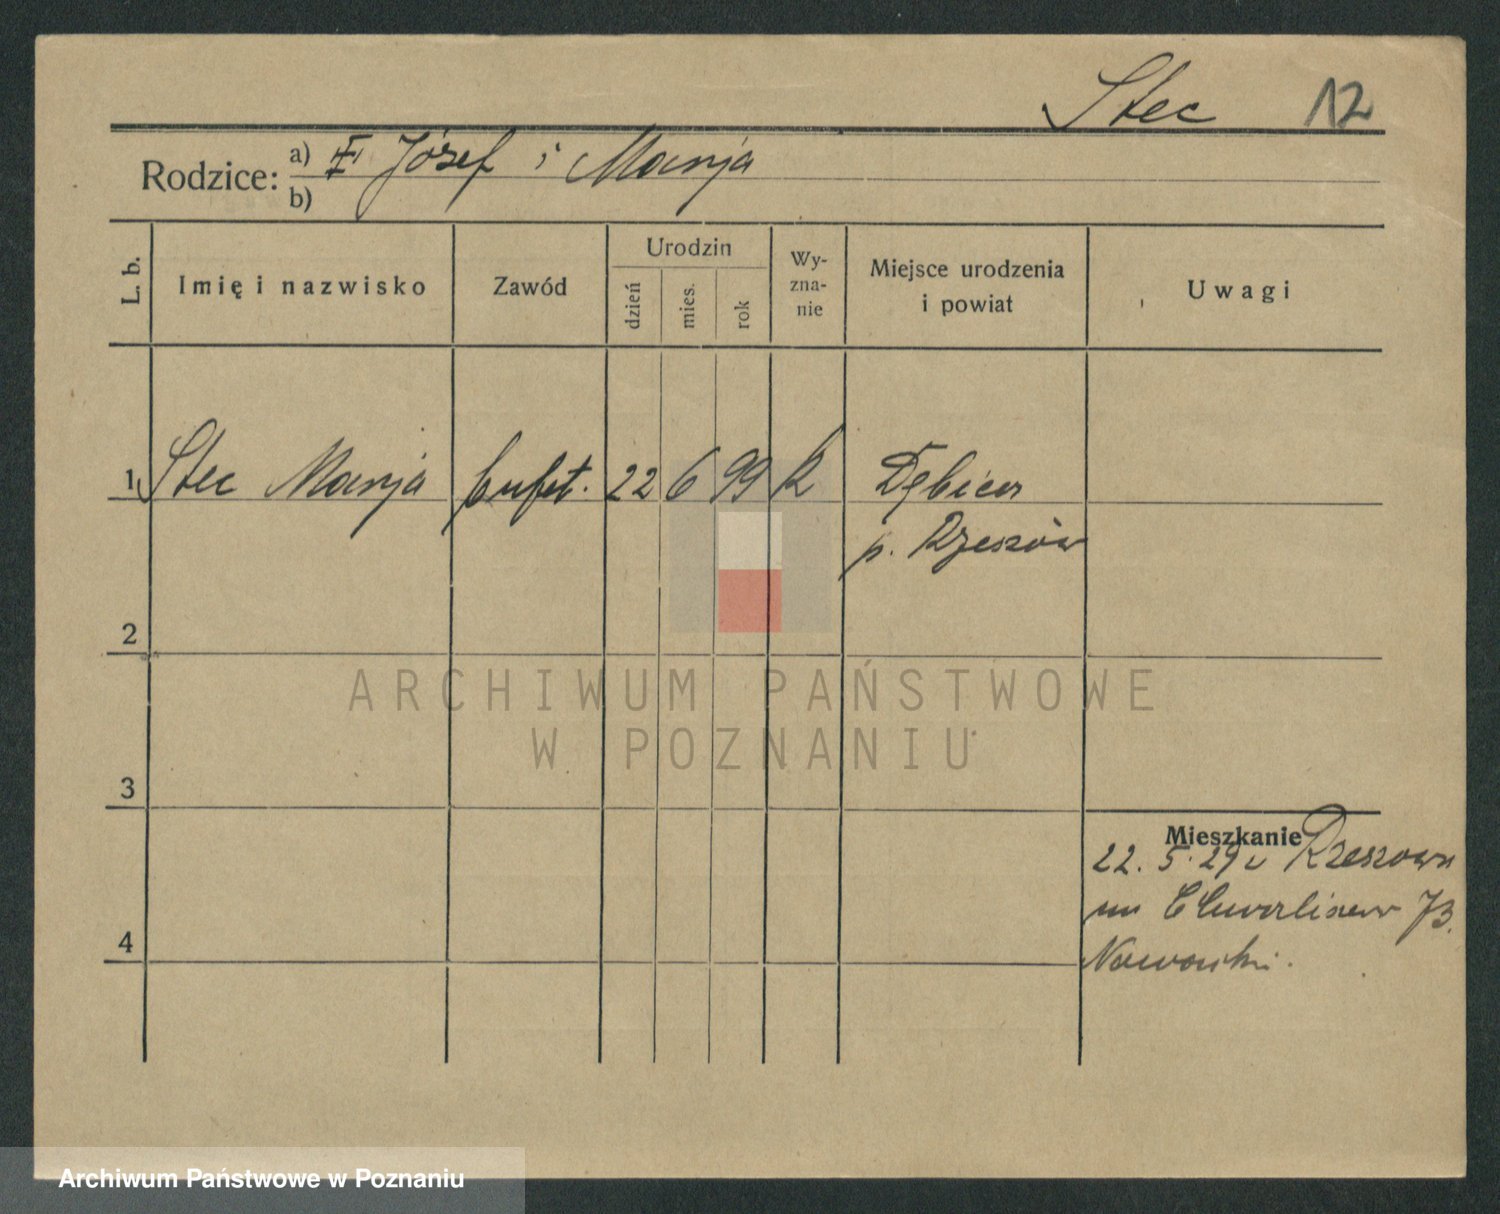 Stec 12
Rodzice: a) Józef i Marja
b)
L. b. Imię i nazwisko Zawód Urodzin dzień mies. rok Wy-zna-nie Miejsce urodzenia i powiat Uwagi
1 Stec Marja bufet. 22 6 99 k Dębica
p. Rzeszów
2
ARCHIWUM PAŃSTWOWE
W POZNANIU
3
Mieszkanie
22. 5. 29 z Rzeszowa
73.
4
Nowowiejski.
Archiwum Państwowe w Poznaniu